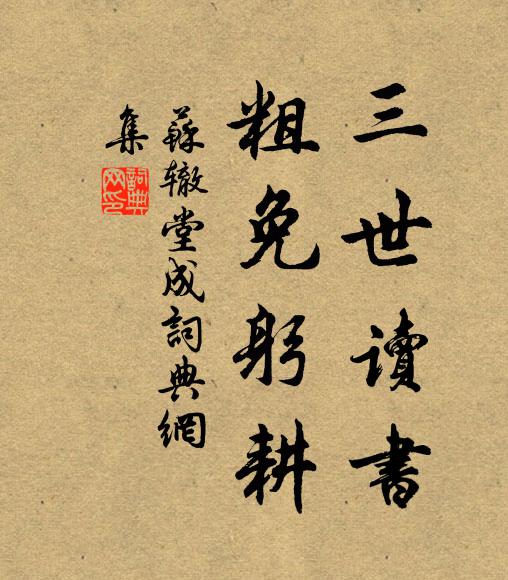 三世讀書
粗免躬耕
蘇辙堂成詞典網
集
詞典
网印